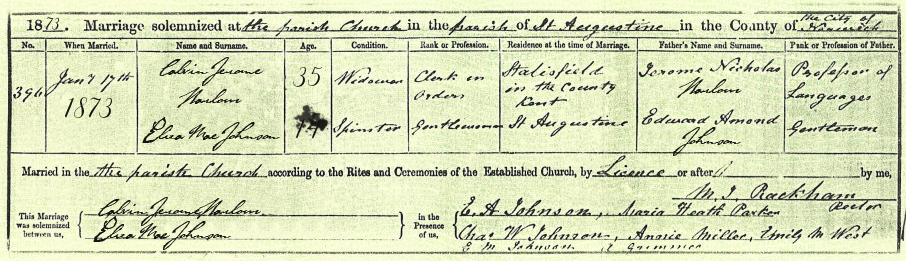 1873. Marriage solemnized at the parish Church in the parish of St Augustine in the County of the City of Norwich
No. When Married. Name and Surname. Age. Condition. Rank or Profession. Residence at the time of Marriage. Father's Name and Surname. Rank or Profession of Father.
396 Jany 17th 1873 Calvin Jerome Marlow 35 Widower Clerk in Orders Stalisfield in the County Kent Jerome Nicholas Marlow Professor of Languages
Eliza Mae Johnson Spinster Gentlewoman St Augustine Edward Amond Johnson Gentleman
Married in the the parish Church according to the Rites and Ceremonies of the Established Church, by Licence or after by me,
M. J. Rackham
Rector
This Marriage was solemnized between us, Calvin Jerome Marlow
Eliza Mae Johnson
in the Presence of us, E. A Johnson, Maria Heath Parker
Chas W Johnson, Annie Miller, Emily M West
E M Johnson